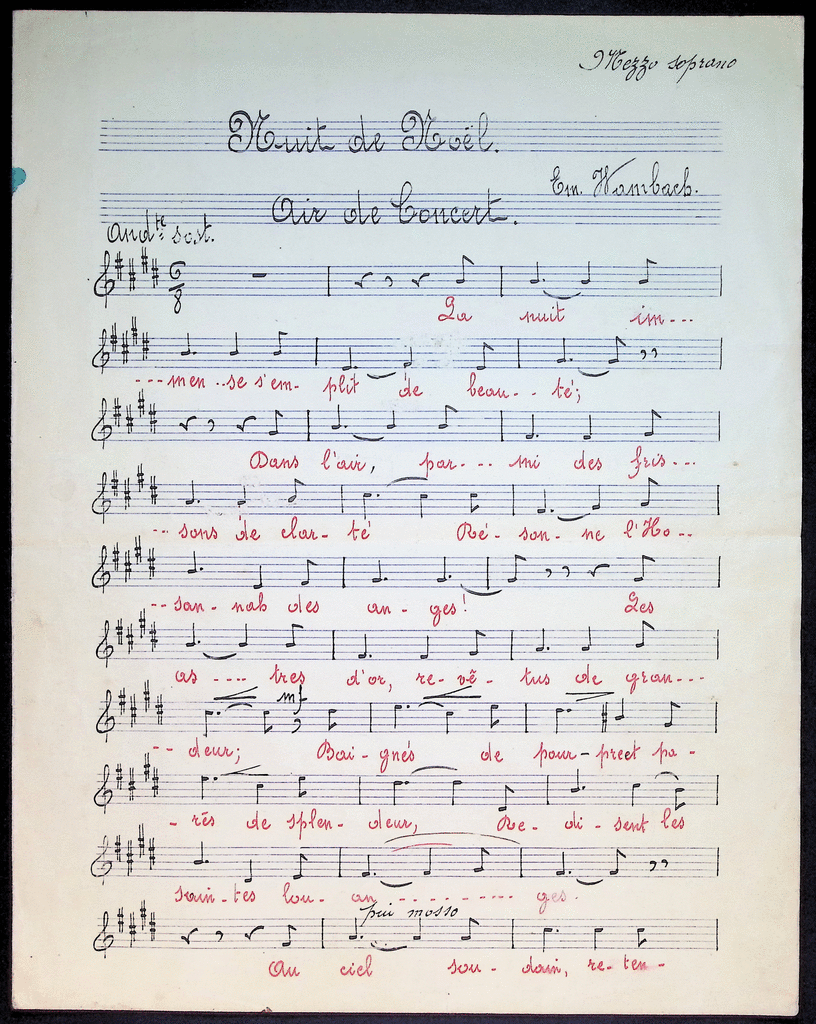 Mezzo soprano
Nuit de Noël.
Em. Wambach.
Air de Concert.
Andte sost.
6
8
La nuit im---
---men--se s'em- plit de beau--té;
Dans l'air, par---mi des fris---
--sons de clar-té Ré-son-ne l'Ho--
--san-nah des an-ges! Les
as----tres d'or, re-vê-tus de gran---
mf
--deur; Bai-gnés de pour-preet pa-
-rés de splen-deur, Re-di-sent les
sain-tes lou-an----------ges.
piu mosso
Au ciel sou-dain, re-ten-